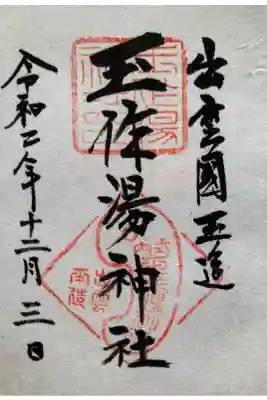 出雲國玉造
玉作湯神社
令和二年十二月三日